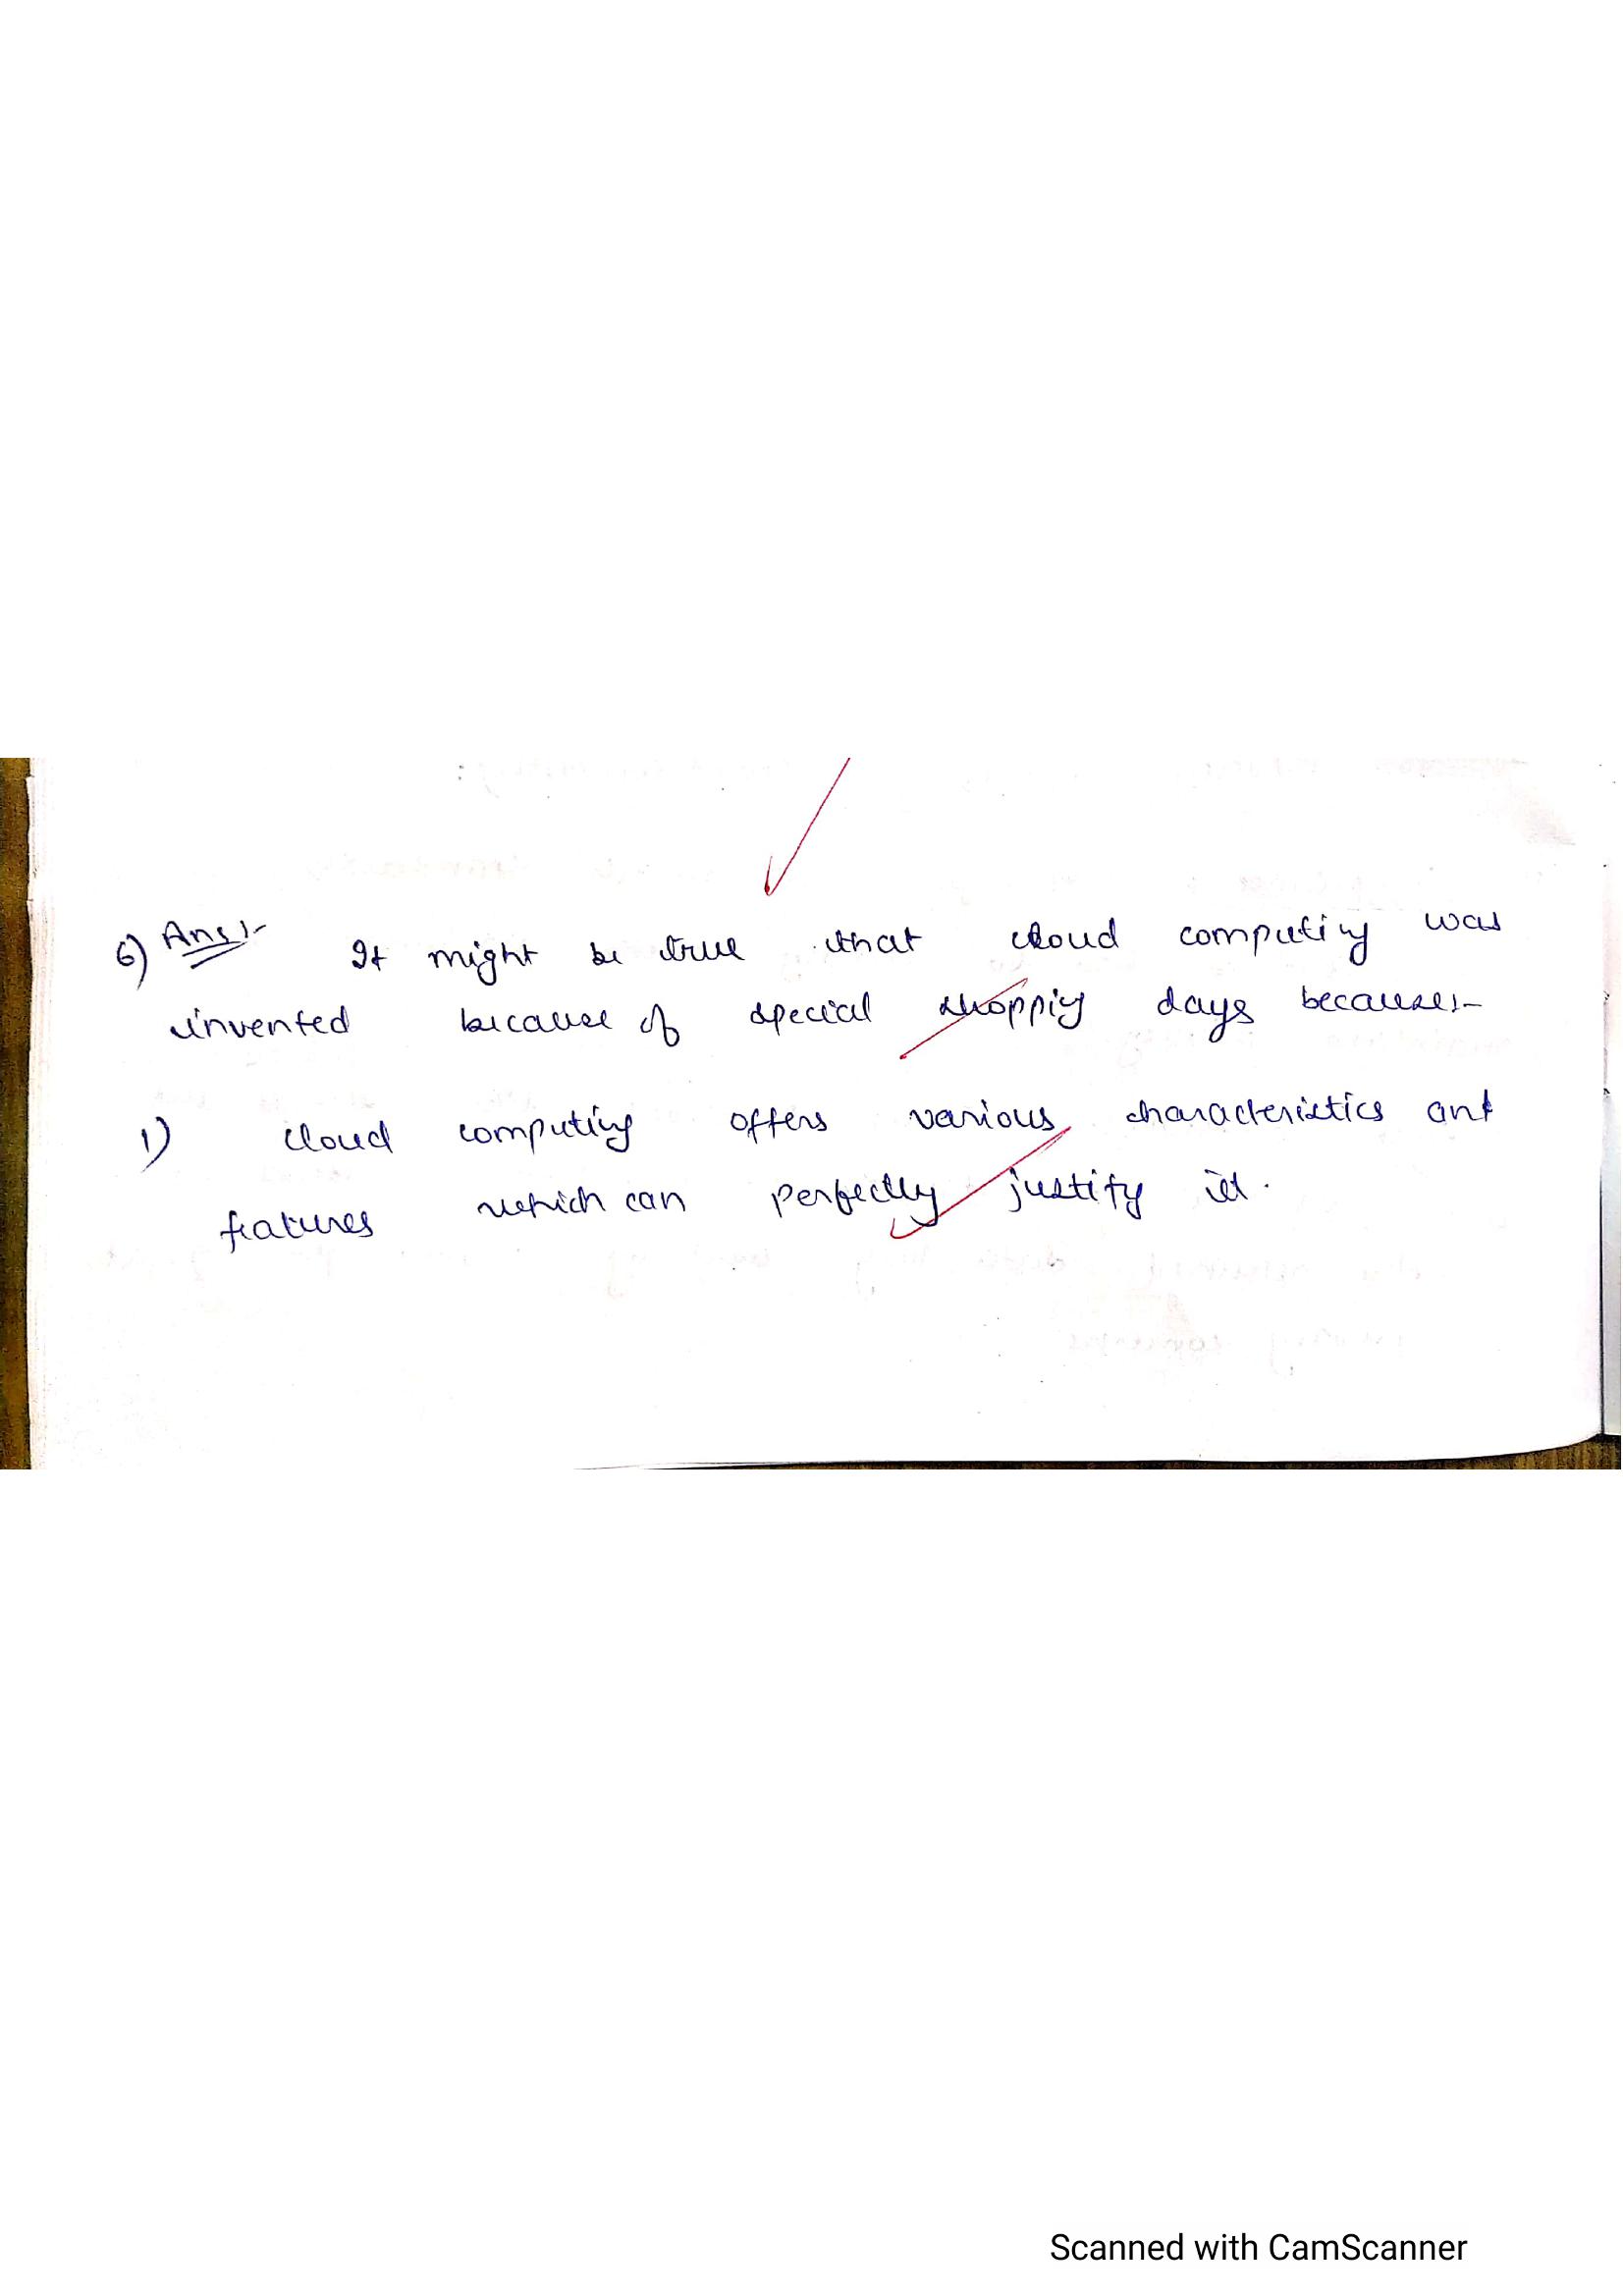 6) Ans:- It might be true that cloud computing was
invented because of special shopping days because:-
1) cloud computing offers various characteristics and
features which can perfectly justify it.
Scanned with CamScanner